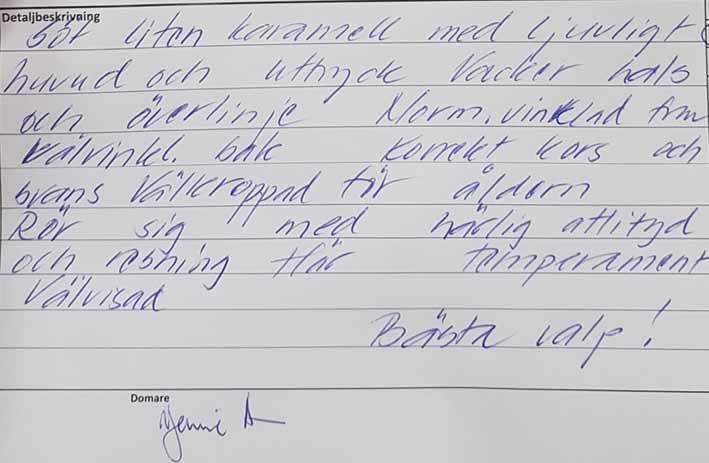 Detaljbeskrivning
Söt liten karamell med ljuvligt
huvud och uttryck Vacker hals
och överlinje Norm. vinklad fram
Välvinkl. bak Korrekt kors och
svans Välkroppad för åldern
Rör sig med härlig attityd
och resning Härl temperament
Välvisad
Bästa valp!
Domare
Jenni A